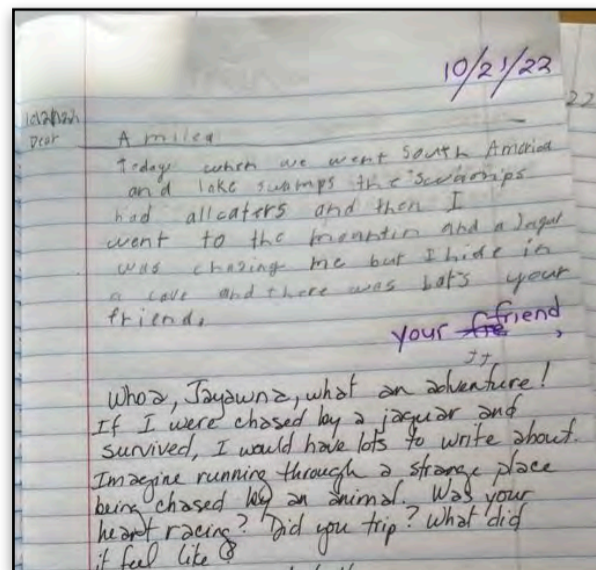 10/21/22
22
Dear
Amilea
Today when we went South America
and lake swamps the swamps
had allcaters and then I
went to the mountin and a Jagul
was chasing me but I hide in
a cave and there was bats your
friend,
your fre friend,
JJ
Whoa, Jayawna, what an adventure!
If I were chased by a jaguar and
survived, I would have lots to write about.
Imagine running through a strange place
being chased by an animal. Was your
heart racing? Did you trip? What did
it feel like?